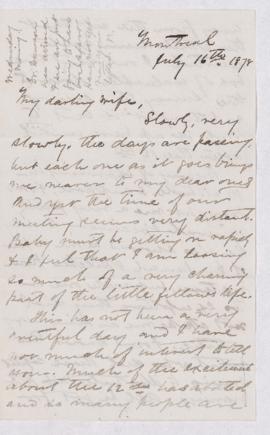 Montreal
July 16th 1878
My darling wife,
Slowly, very
slowly, the days are passing
but each one as it goes brings
me nearer to my dear ones
And yet the time of our
meeting seems very distant.
Baby must be getting on rapidly
& I feel that I am loosing
so much of a very charming
part of the little fellow's life.
This has not been a very
eventful day and I have
not much of interest to tell
you. Much of the excitement
about the 12th has abated
and so many people are